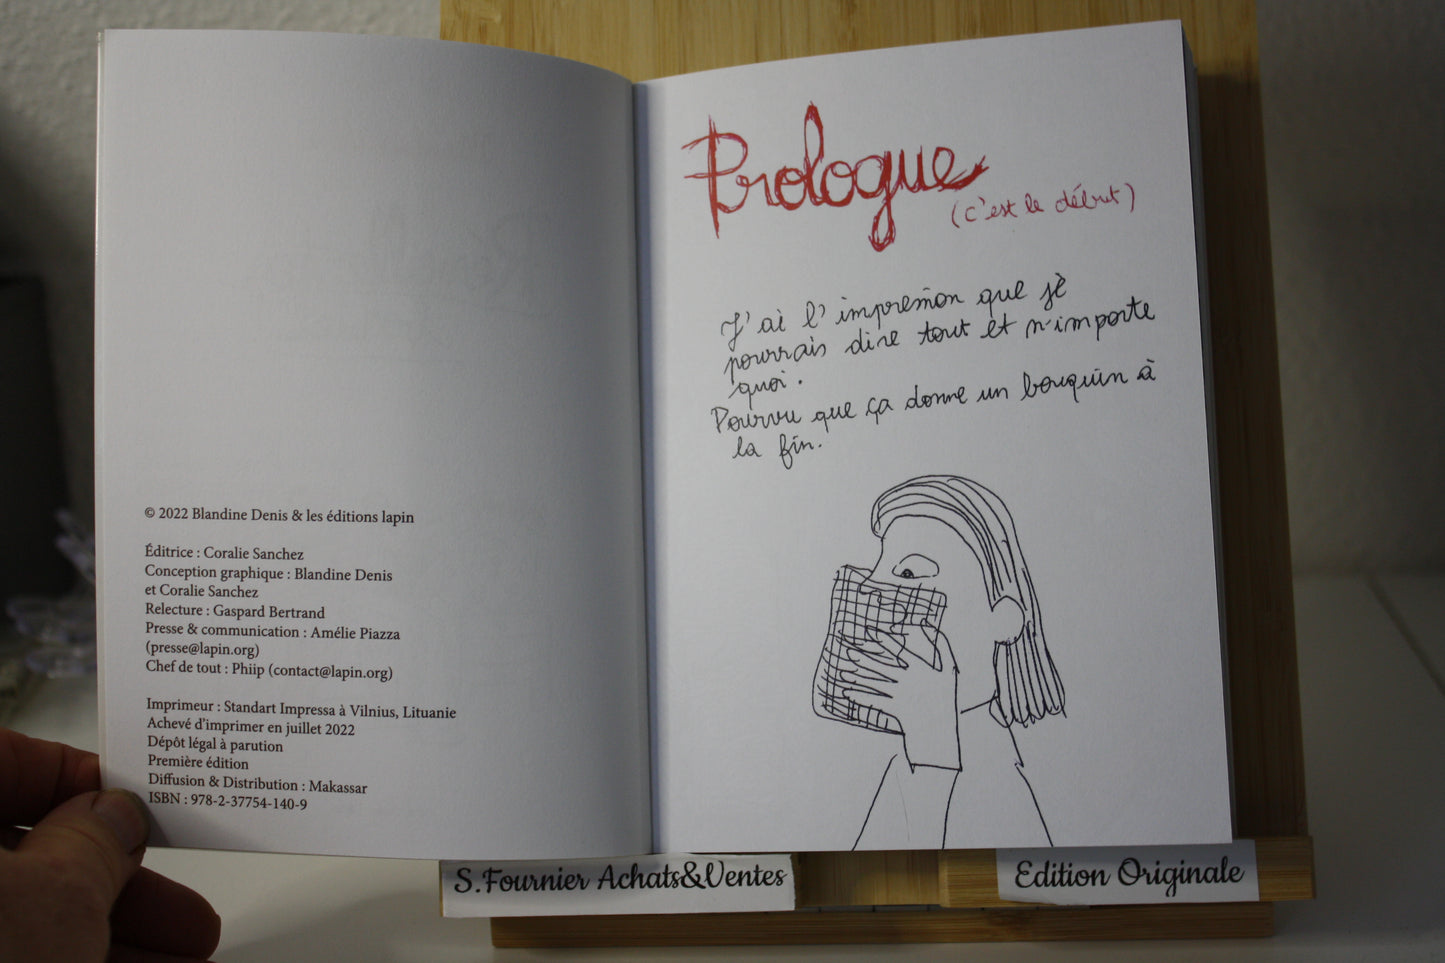 © 2022 Blandine Denis & les éditions lapin
Éditrice : Coralie Sanchez
Conception graphique : Blandine Denis
et Coralie Sanchez
Relecture : Gaspard Bertrand
Presse & communication : Amélie Piazza
(presse@lapin.org)
Chef de tout : Phiip (contact@lapin.org)
Imprimeur : Standart Impressa à Vilnius, Lituanie
Achevé d'imprimer en juillet 2022
Dépôt légal à parution
Première édition
Diffusion & Distribution : Makassar
ISBN : 978-2-37754-140-9
Prologue
(c'est le début)
J'ai l'impression que je
pourrais dire tout et n'importe
quoi.
Pourvu que ça donne un bouquin à
la fin.
S.Fournier Achats&Ventes
Edition Originale